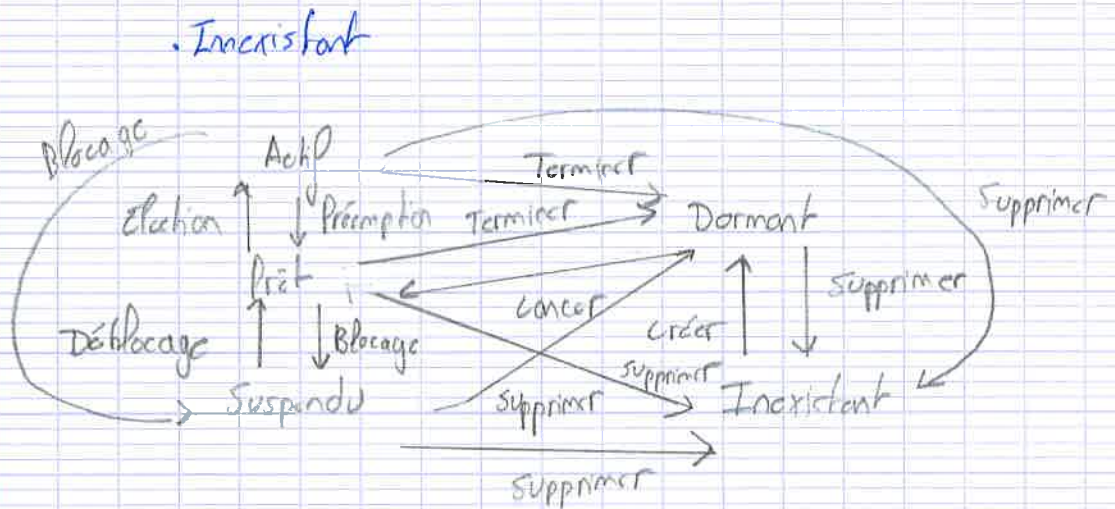 . Inexistant
Blocage
Actif
Terminer
Election
Préemption
Terminer
Dormant
Supprimer
Prêt
Lancer
Supprimer
Déblocage
Blocage
Créer
Supprimer
Suspendu
Supprimer
Inexistant
Supprimer